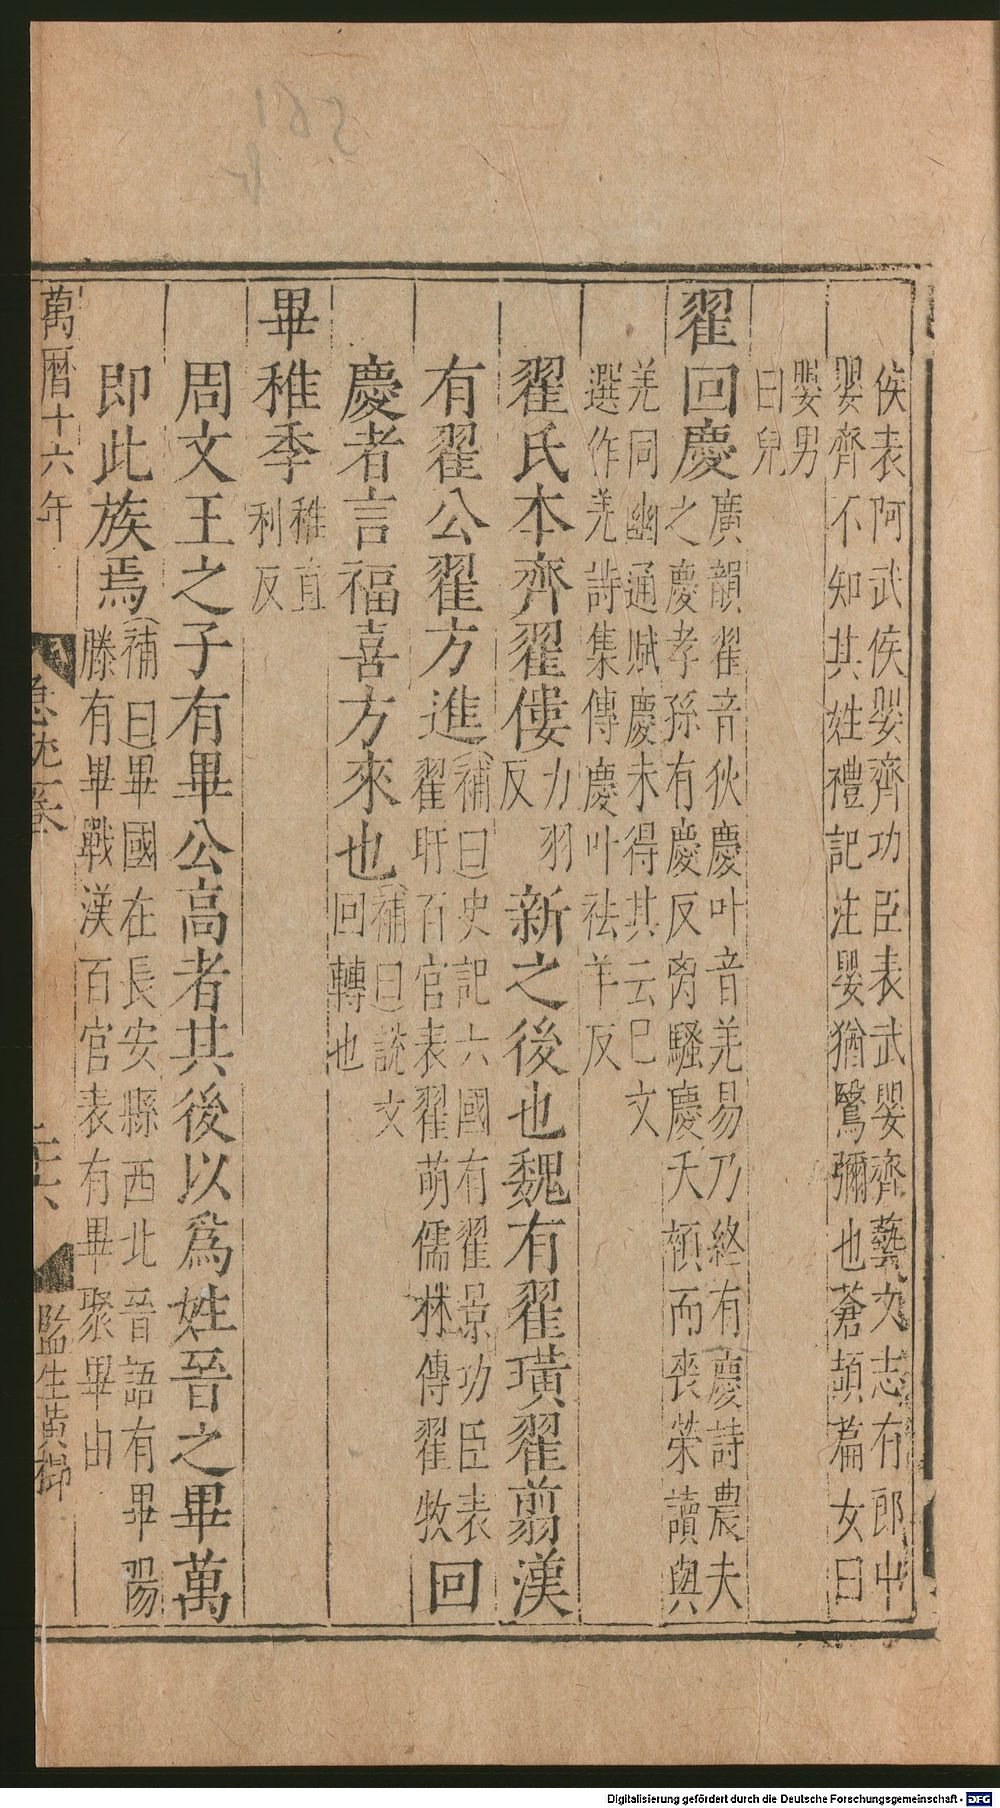 侯表阿武侯嬰齊功臣表武嬰齊藝文志有郎中
嬰齊不知其姓禮記注嬰猶鷖彌也蒼頡篇女曰
嬰男
曰兒
翟回慶
廣韻翟音狄慶叶音羌易乃終有慶詩農夫
之慶孝孫有慶反离騷慶夭顇而喪榮讀與
羌同幽通賦慶未得其云巳文
選作羌詩集傳慶叶祛羊反
翟氏本齊翟僂
力羽
反
新之後也魏有翟璜翟翦漢
有翟公翟方進
補曰史記六國有翟景功臣表
翟盱百官表翟萌儒林傳翟牧
回
慶者言福喜方來也
補曰說文
回轉也
畢稚季
稚直
利反
周文王之子有畢公高者其後以爲姓晉之畢萬
即此族焉
補曰畢國在長安縣西北晉語有畢陽
滕有畢戰漢百官表有畢聚畢由
萬曆十六年
急就一卷
監生黃
561
Digitalisierung gefördert durch die Deutsche Forschungsgemeinschaft - DFG